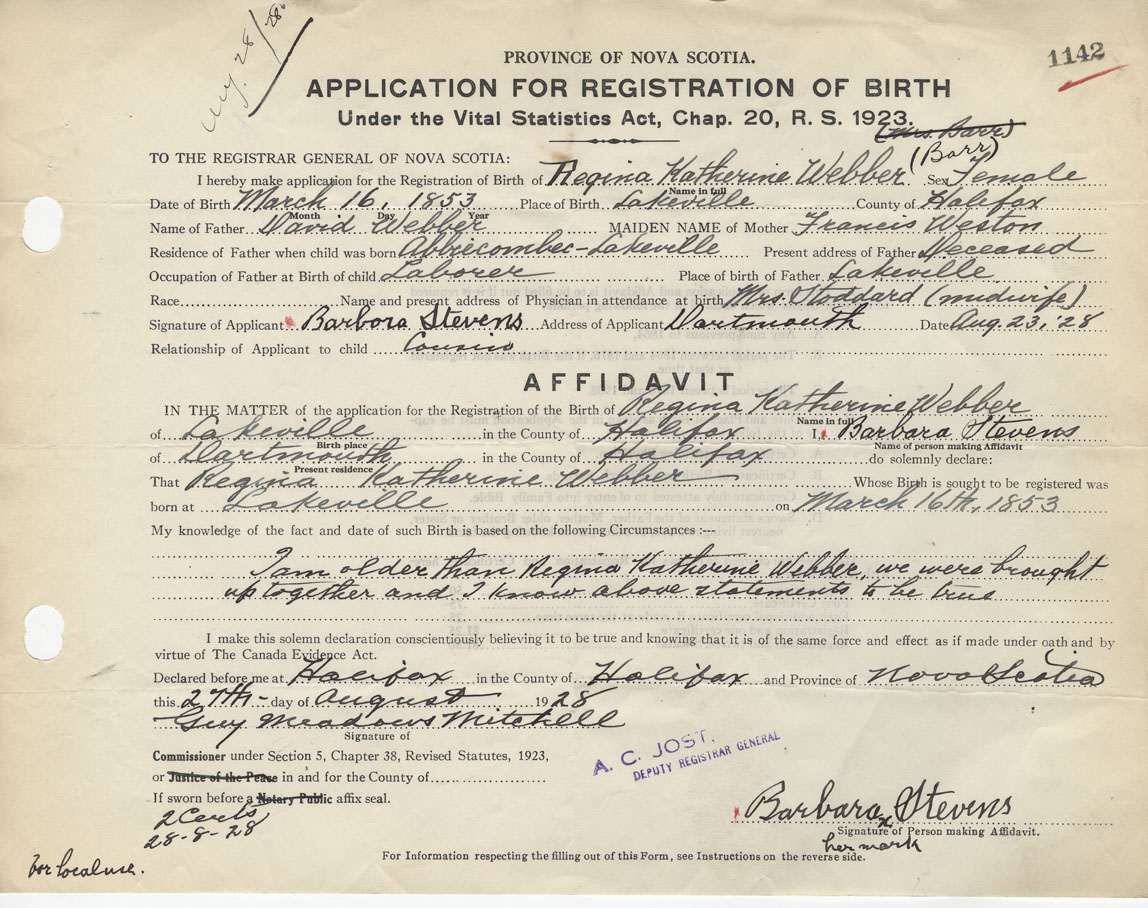 Aug. 28/28
PROVINCE OF NOVA SCOTIA.
1142
APPLICATION FOR REGISTRATION OF BIRTH
Under the Vital Statistics Act, Chap. 20, R. S. 1923.
(Mrs. Barr)
(Barr)
TO THE REGISTRAR GENERAL OF NOVA SCOTIA:
I hereby make application for the Registration of Birth of Regina Katherine Webber Sex Female
Name in full
Date of Birth March 16, 1853 Place of Birth Lakeville County of Halifax
Month Day Year
Name of Father David Webber MAIDEN NAME of Mother Francis Weston
Residence of Father when child was born Abbrecombec-Lakeville Present address of Father Deceased
Occupation of Father at Birth of child Laborer Place of birth of Father Lakeville
Race Name and present address of Physician in attendance at birth Mrs. Stoddard (midwife)
Signature of Applicant Barbara Stevens Address of Applicant Dartmouth Date Aug. 23, '28
Relationship of Applicant to child Cousin
AFFIDAVIT
IN THE MATTER of the application for the Registration of the Birth of Regina Katherine Webber
Name in full
of Lakeville in the County of Halifax I, Barbara Stevens
Birth place Name of person making Affidavit
of Dartmouth in the County of Halifax do solemnly declare:
Present residence
That Regina Katherine Webber Whose Birth is sought to be registered was
born at Lakeville on March 16th, 1853
My knowledge of the fact and date of such Birth is based on the following Circumstances :---
I am older than Regina Katherine Webber, we were brought
up together and I know above statements to be true
I make this solemn declaration conscientiously believing it to be true and knowing that it is of the same force and effect as if made under oath and by
virtue of The Canada Evidence Act.
Declared before me at Halifax in the County of Halifax and Province of Nova Scotia
this 27th day of August 1928
Guy Meadows Mitchell
Signature of
Commissioner under Section 5, Chapter 38, Revised Statutes, 1923,
or Justice of the Peace in and for the County of
If sworn before a Notary Public affix seal.
A. C. JOST.
DEPUTY REGISTRAR GENERAL
2 Certs
28-8-28
Barbara x Stevens
Signature of Person making Affidavit.
her mark
For Information respecting the filling out of this Form, see Instructions on the reverse side.
For local use.